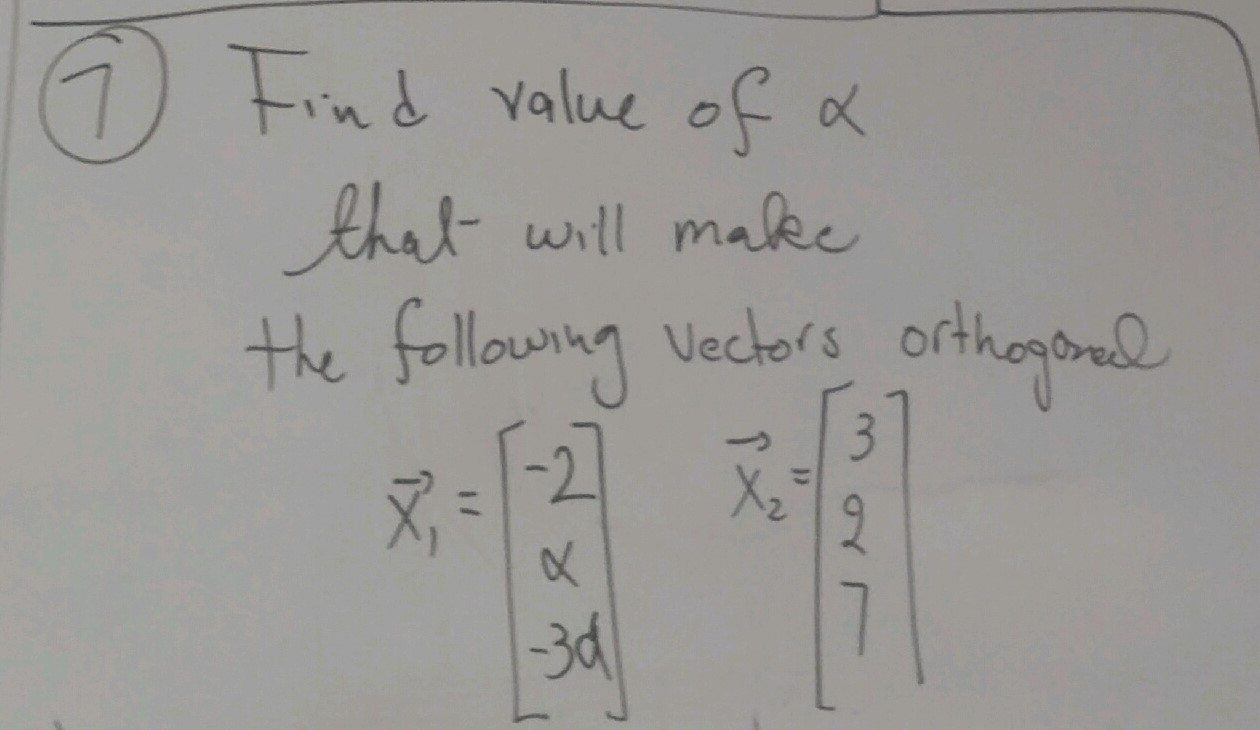 7 Find value of α
that will make
the following vectors orthogonal
X⃗₁ = [-2 α -3α] X⃗₂ = [3 2 7]